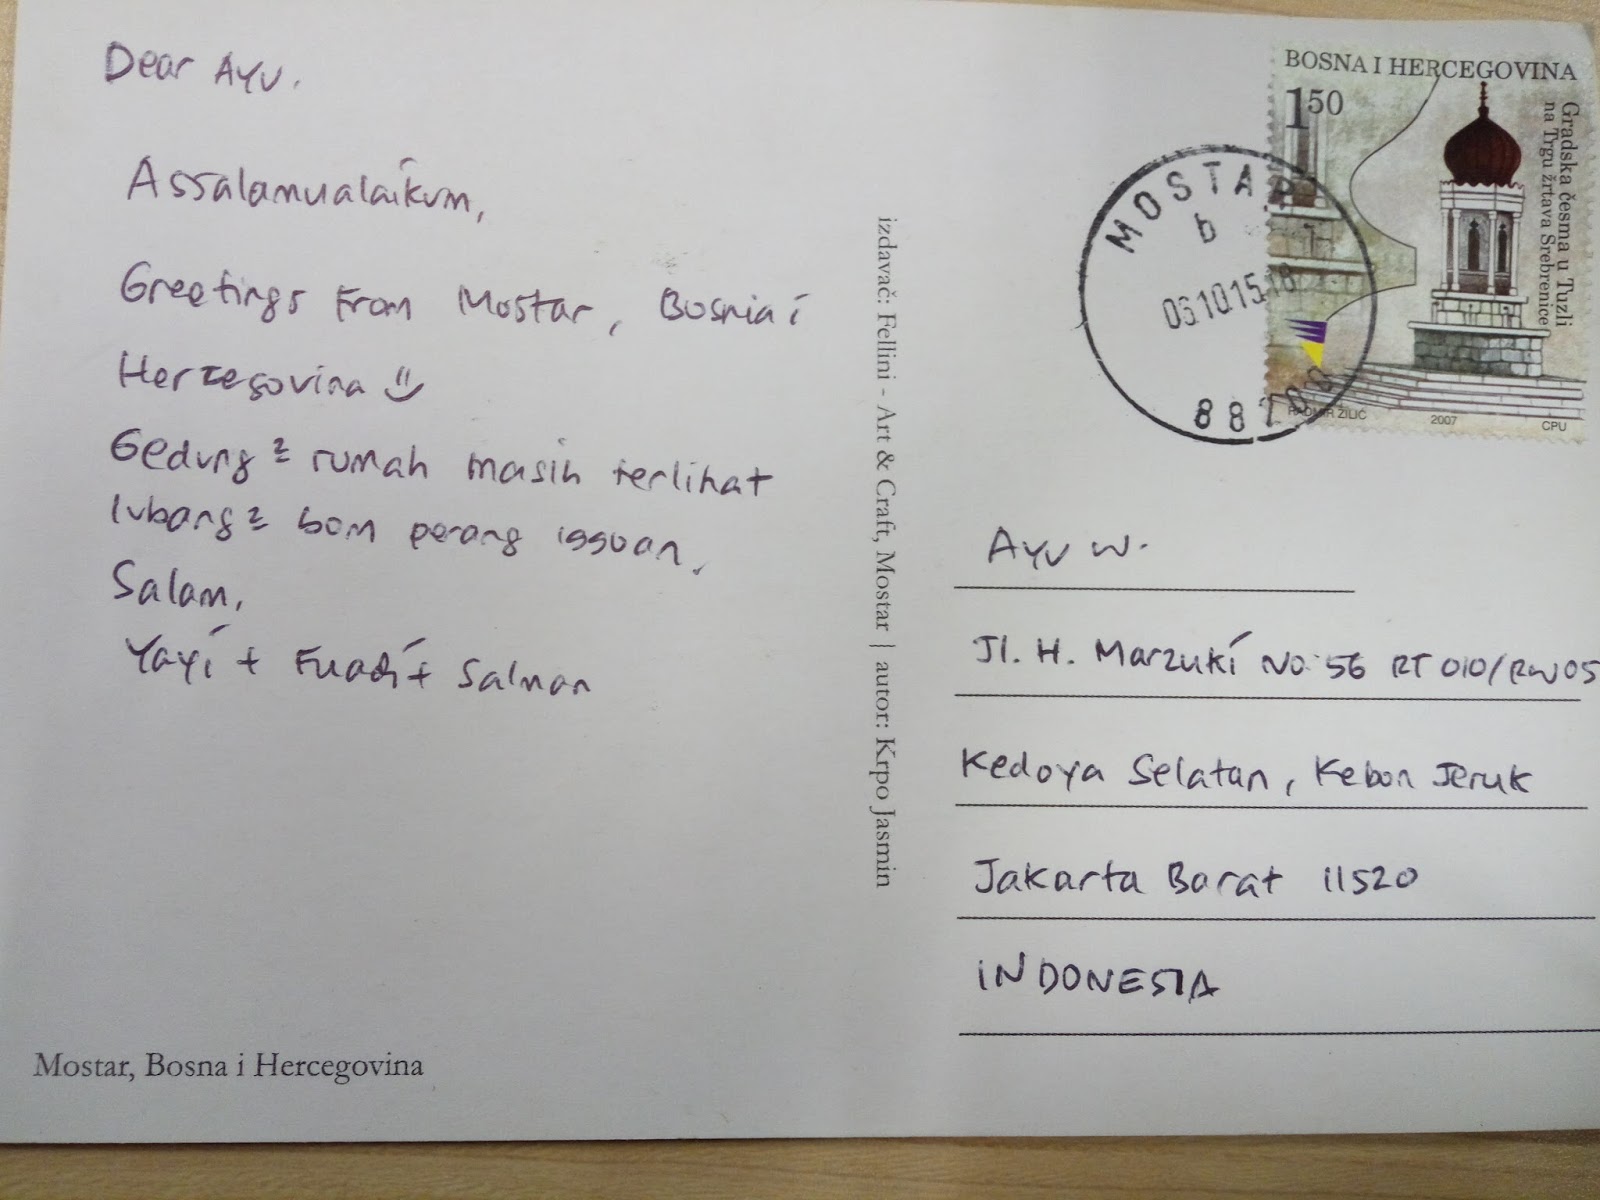 Dear Ayu.
Assalamualaikum,
Greetings From Mostar, Bosnia i
Hercegovina
Gedung² rumah masih terlihat
lubang² bom perang 1990an.
Salam,
Yayi + Fuadi + Salman
Mostar, Bosna i Hercegovina
izdavač: Fellini - Art & Craft, Mostar | autor: Krpo Jasmin
BOSNA I HERCEGOVINA
150
Gradska česma u Tuzli
na Trgu žrtava Srebrenice
RADMIR ŽILIĆ 2007 CPU
MOSTAR
b
06.10.15.18
Ayu W.
Jl. H. Marzuki No. 56 RT 010/RW 05
Kedoya Selatan, Kebon Jeruk
Jakarta Barat 11520
INDONESIA